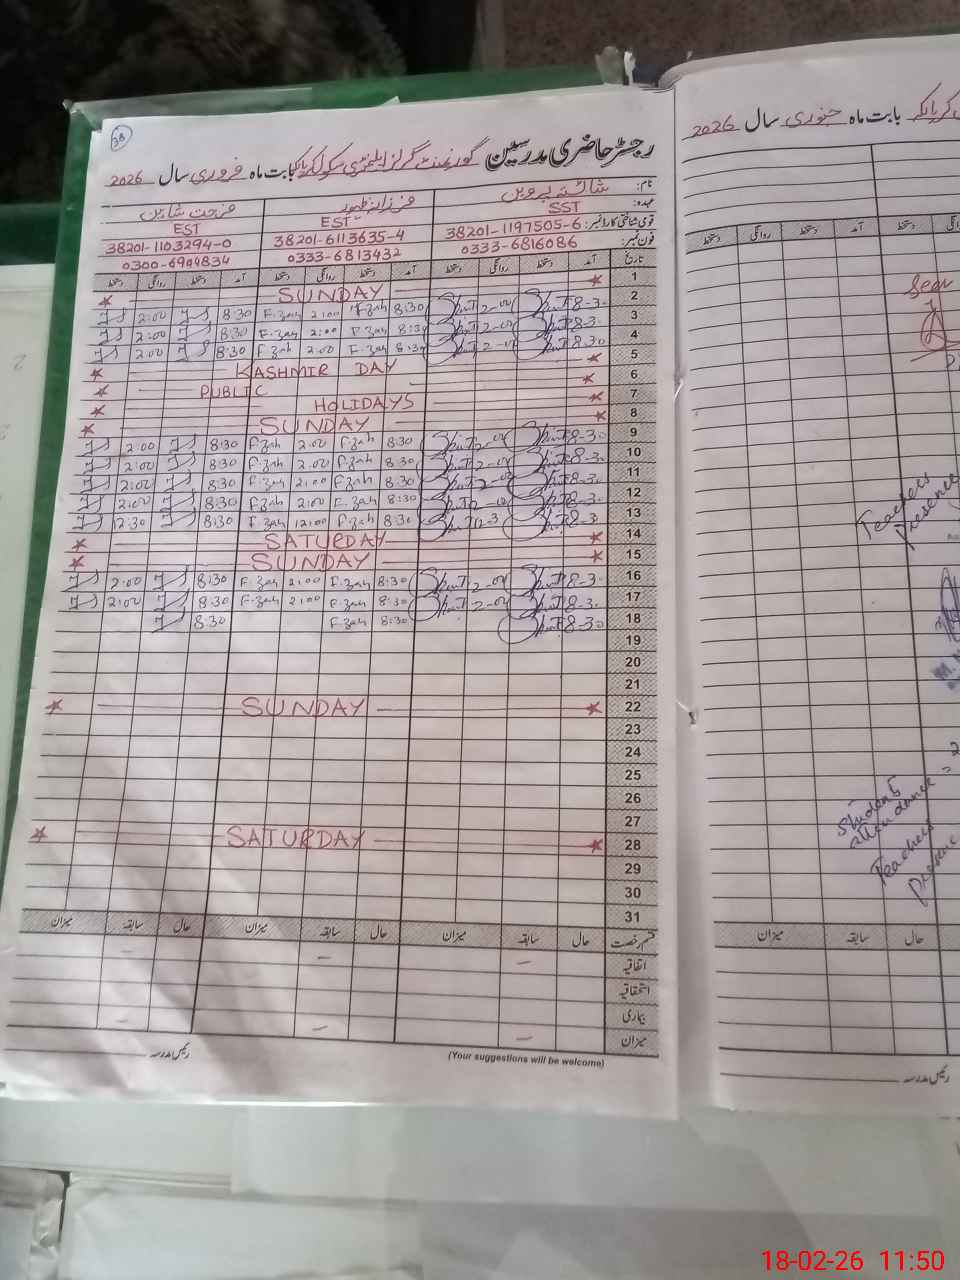 38
رجسٹر حاضری مدرسین گورنمنٹ گرلز ایلیمنٹری سکول بابت ماہ فروری سال 2026
نام: شائستہ پروین فرزانہ ظہور فرحت شاہین
عہدہ: SST EST EST
قومی شناختی کارڈ نمبر: 38201-1197505-6 38201-6113635-4 38201-1103294-0
فون نمبر: 0333-6816086 0333-6813432 0300-6904834
تاریخ آمد دستخط روانگی دستخط آمد دستخط روانگی دستخط آمد دستخط روانگی دستخط
1 SUNDAY
2 8-30 2-00 8:30 F.zah 2:00 F.zah 8:30 2:00
3 8-30 2-00 8:30 F.zah 2:00 F.zah 8:30 2:00
4 8-30 2-00 8:30 F.zah 2:00 F.zah 8:30 2:00
5 KASHMIR DAY
6 PUBLIC
7 HOLIDAYS
8 SUNDAY
9 8-30 2-00 8:30 F.zah 2:00 F.zah 8:30 2:00
10 8-30 2-00 8:30 F.zah 2:00 F.zah 8:30 2:00
11 8-30 2-00 8:30 F.zah 2:00 F.zah 8:30 2:00
12 8-30 2-00 8:30 F.zah 2:00 F.zah 8:30 2:00
13 8-30 12-30 8:30 F.zah 12:00 F.zah 8:30 12:30
14 SATURDAY
15 SUNDAY
16 8-30 2-00 8:30 F.zah 2:00 F.zah 8:30 2:00
17 8-30 2-00 8:30 F.zah 2:00 F.zah 8:30 2:00
18 8-30 8:30 F.zah 8:30
19
20
21
22 SUNDAY
23
24
25
26
27
28 SATURDAY
29
30
31
قسم رخصت حال سابقہ میزان حال سابقہ میزان حال سابقہ میزان
اتفاقیہ
استحقاقیہ
بیماری
میزان
(Your suggestions will be welcome)
رئیس مدرسہ
بابت ماہ جنوری سال 2026
آمد دستخط روانگی دستخط
Teachers
Presence
Students
attendance =
Teachers
Presence
حال سابقہ میزان
رئیس مدرسہ
18-02-26 11:50